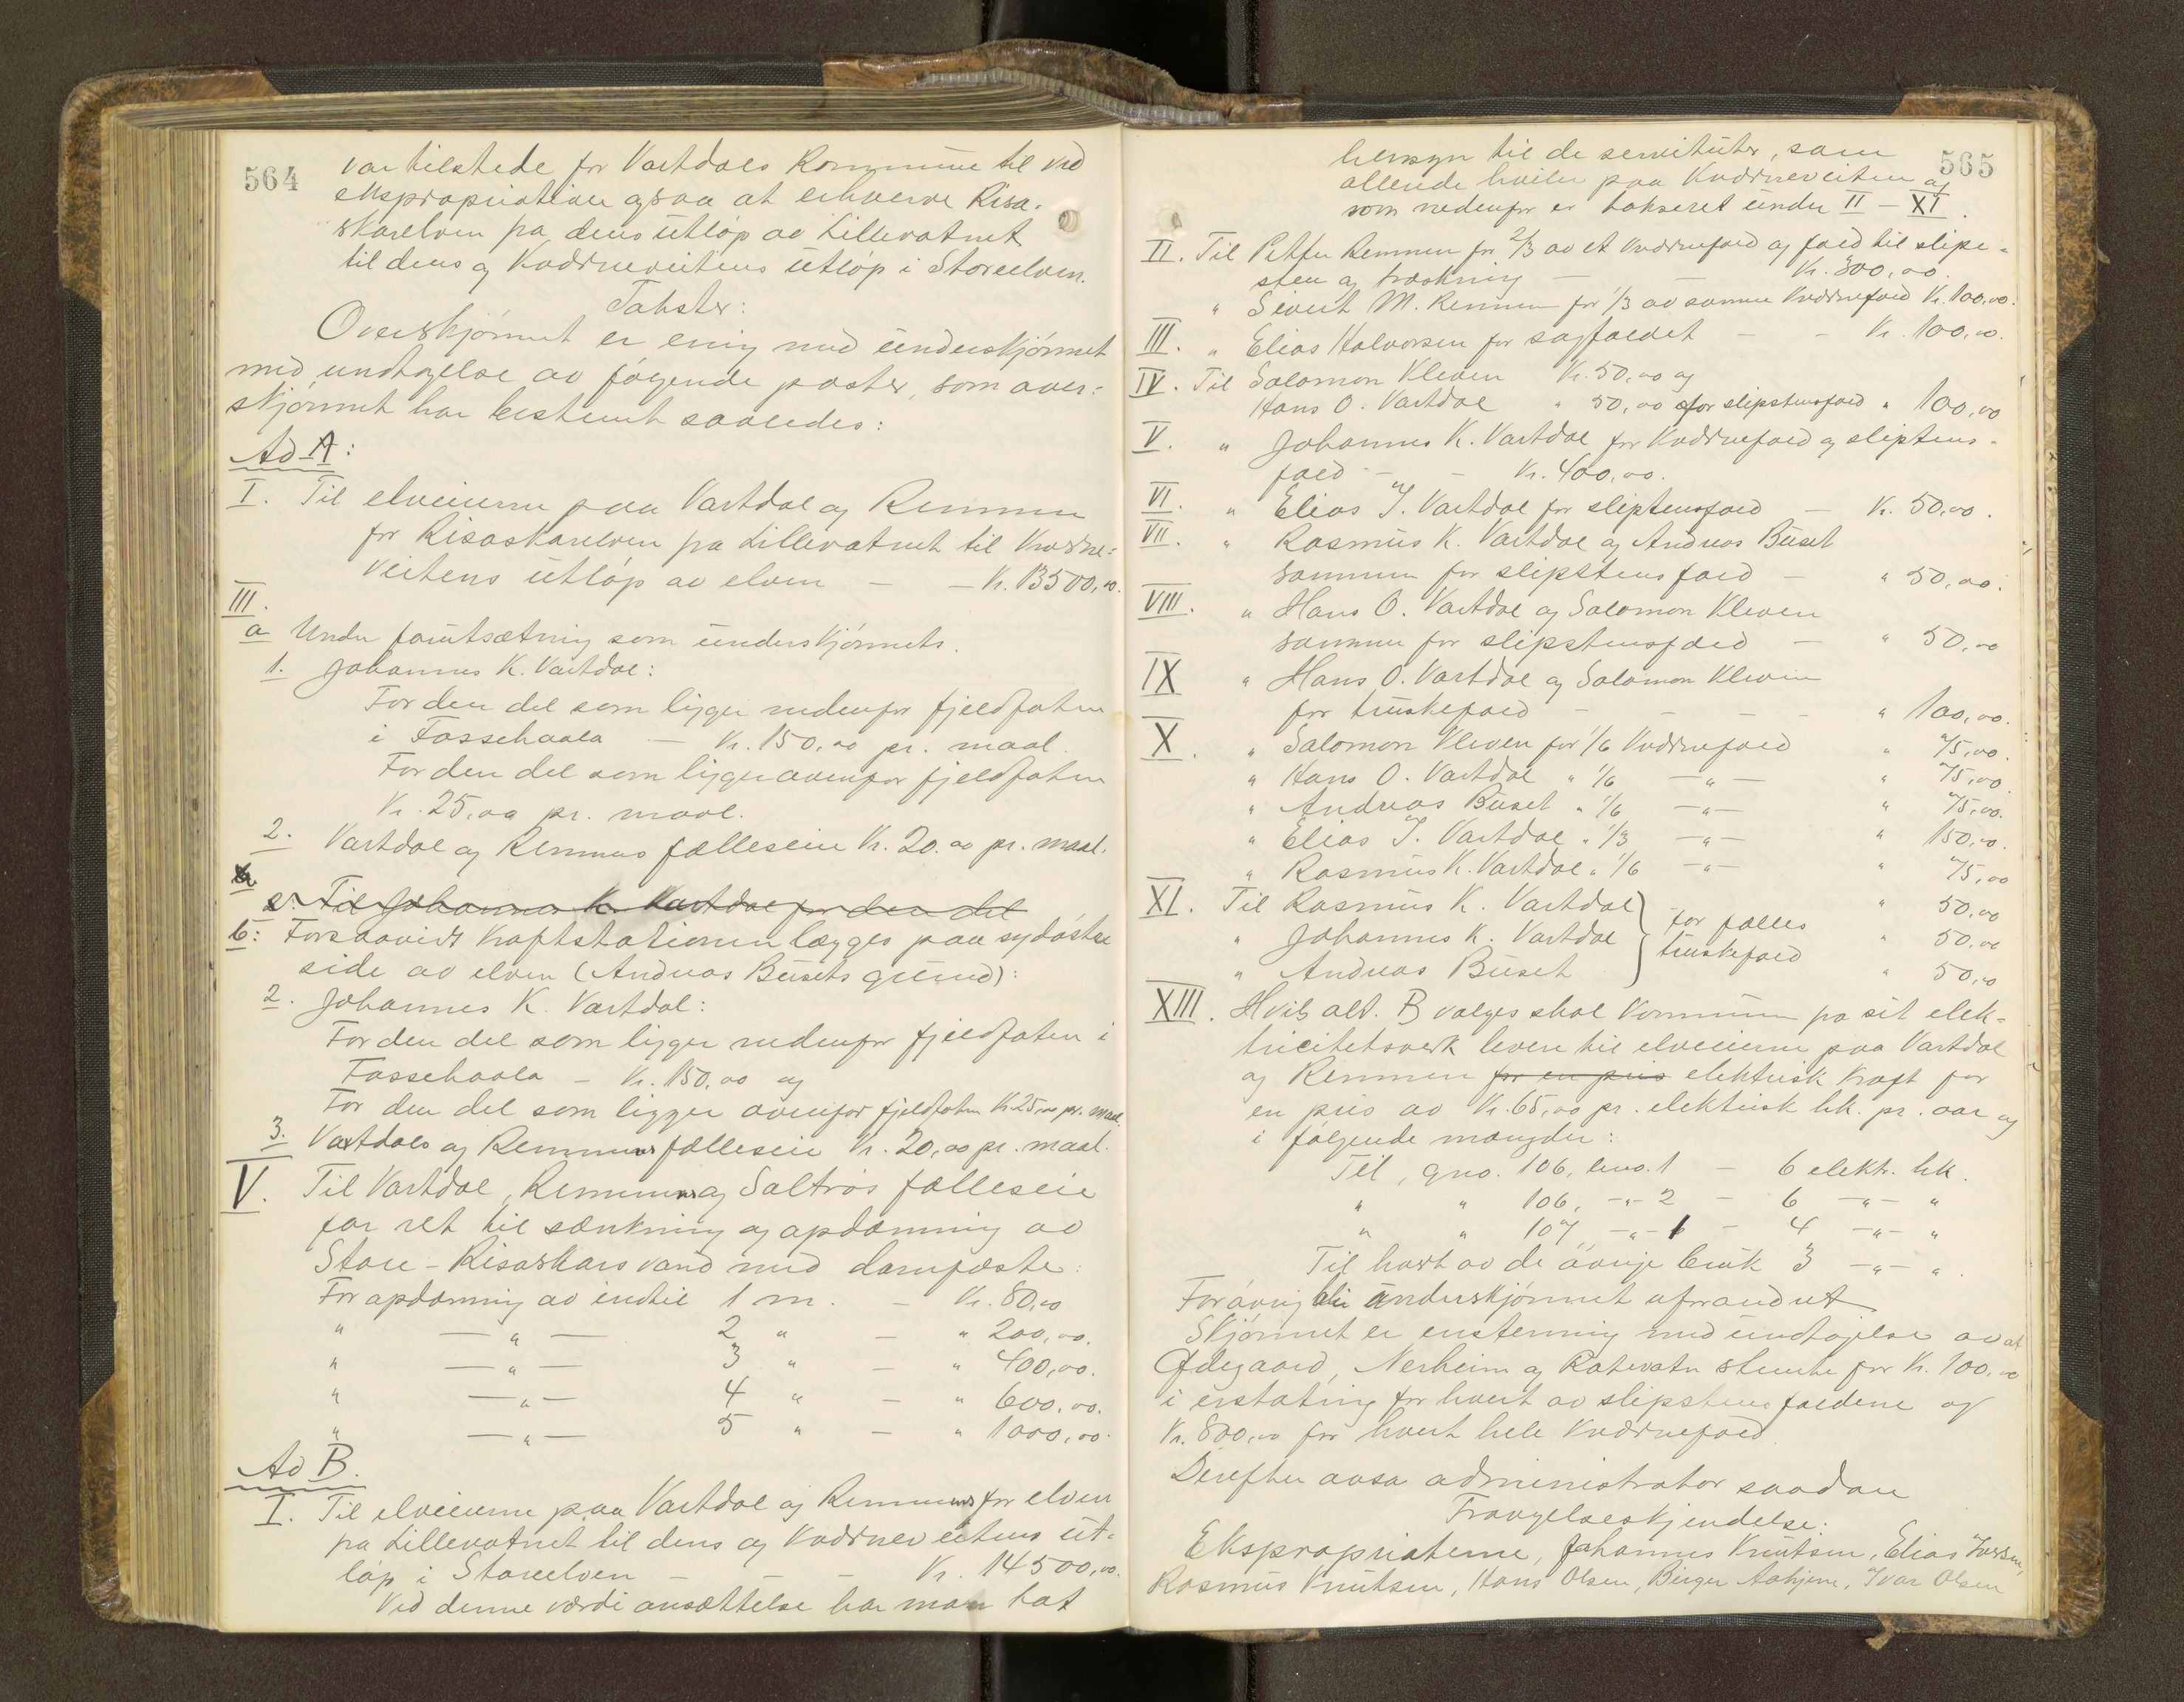 564
var tilstede for Vartdals Kommune til ved
ekspropriation ogsaa at erhverve Risa-
skarelven fra dens utløp av Lillevatnet
til dens og Kværneveitens utløp i Storeelven.
Takster:
Overskjønnet er enig med underskjønnet
med undtagelse av følgende poster, som over-
skjønnet har bestemt saaledes:
Ad A:
I. Til elveierne paa Vartdal og Remmen
for Risaskarelven fra Lillevatnet til Kværne-
veitens utløp av elven — — Kr. 13500,00.
III.
a Under forutsætning som underskjønnets.
1. Johannes K. Vartdal:
For den del som ligger nedenfor fjeldfoten
i Fossehaala — Kr. 150,00 pr. maal.
For den del som ligger ovenfor fjeldfoten
Kr. 25,00 pr. maal.
2. Vartdal og Remmens fælleseie Kr. 20.00 pr. maal.
2. Til Johannes K. Vartdal for den del
b: Forsaavidt kraftstationen lægges paa sydøstre
side av elven (Andreas Busets grund):
2. Johannes K. Vartdal:
For den del som ligger nedenfor fjeldfoten i
Fossehaala — Kr. 150,00 og
For den del som ligger ovenfor fjeldfoten Kr. 25,00 pr. maal.
3. Vartdals og Remmens fælleseie Kr. 20,00 pr. maal.
V. Til Vartdal, Remmens og Saltrøs fælleseie
for ret til sænkning og opdæmning av
Store-Risaskarsvand med damfæste:
For opdæmning av indtil 1 m. — Kr. 80,00
" — " — 2 " — " 200,00.
" — " — 3 " — " 400,00.
" — " — 4 " — " 600,00.
" — " — 5 " — " 1000,00.
Ad B.
I. Til elveierne paa Vartdal og Remmens for elven
fra Lillevatnet til dens og Kværneveitens ut-
løp i Storeelven — — — Kr. 14500,00.
Ved denne værdiansættelse har man tat
565
hensyn til de servituter, som
allerede hviler paa Kværneveiten og
som nedenfor er takseret under II — XI.
II. Til Petter Remmen for 2/3 av et kværnefald og fald til slipe-
sten og træskning — — Kr. 300,00.
" Sivert M. Remmen for 1/3 av samme kværnefald Kr. 100,00.
III. " Elias Halvorsen for sagfaldet — — Kr. 100,00.
IV. Til Salomon Kleven Kr. 50,00 og
Hans O. Vartdal " 50,00 for slipstensfald " 100,00
V. " Johannes K. Vartdal for kværnefald og slipstens-
fald — — Kr. 400,00.
VI. " Elias J. Vartdal for slipstensfald — Kr. 50,00.
VII. " Rasmus K. Vartdal og Andreas Buset
sammen for slipstensfald — " 50,00.
VIII. " Hans O. Vartdal og Salomon Kleven
sammen for slipstensfald — " 50,00
IX " Hans O. Vartdal og Salomon Kleven
for truskefald — — — " 100,00.
X. " Salomon Kleven for 1/6 kværnefald " 75,00.
" Hans O. Vartdal " 1/6 — " — " 75,00.
" Andreas Buset " 1/6 — " — " 75,00.
" Elias J. Vartdal " 1/3 — " — " 150,00.
" Rasmus K. Vartdal " 1/6 — " — " 75,00
XI. Til Rasmus K. Vartdal " 50,00
" Johannes K. Vartdal } for fælles truskefald " 50,00
" Andreas Buset " 50,00
XIII. Hvis alt. B vælges skal kommunen fra sit elek-
tricitetsverk levere til elveierne paa Vartdal
og Remmen for en pris elektrisk kraft for
en pris av Kr. 65,00 pr. elektrisk hk. pr. aar og
i følgende mængder:
Til, gno. 106, bno. 1 — 6 elektr. hk.
" " 106, — " — 2 — 6 — " — "
" " 107, — " — 1 — 4 — " — "
Til hvert av de øvrige bruk 3 — " — ".
Forøvrig blir underskjønnet uforandret
Skjønnet er enstemmig med undtagelse av at
Ødegaard, Nerheim og Ratvatn stemte for Kr. 100,00
i erstatning for hvert av slipstensfaldene og
Kr. 800,00 for hvert hele kværnefald
Derefter avsa administrator saadan
Fravgelseskjendelse:
Ekspropriaterne, Johannes Knutsen, Elias Iversen,
Rasmus Knutsen, Hans Olsen, Birger Aakjene, Ivar Olsen